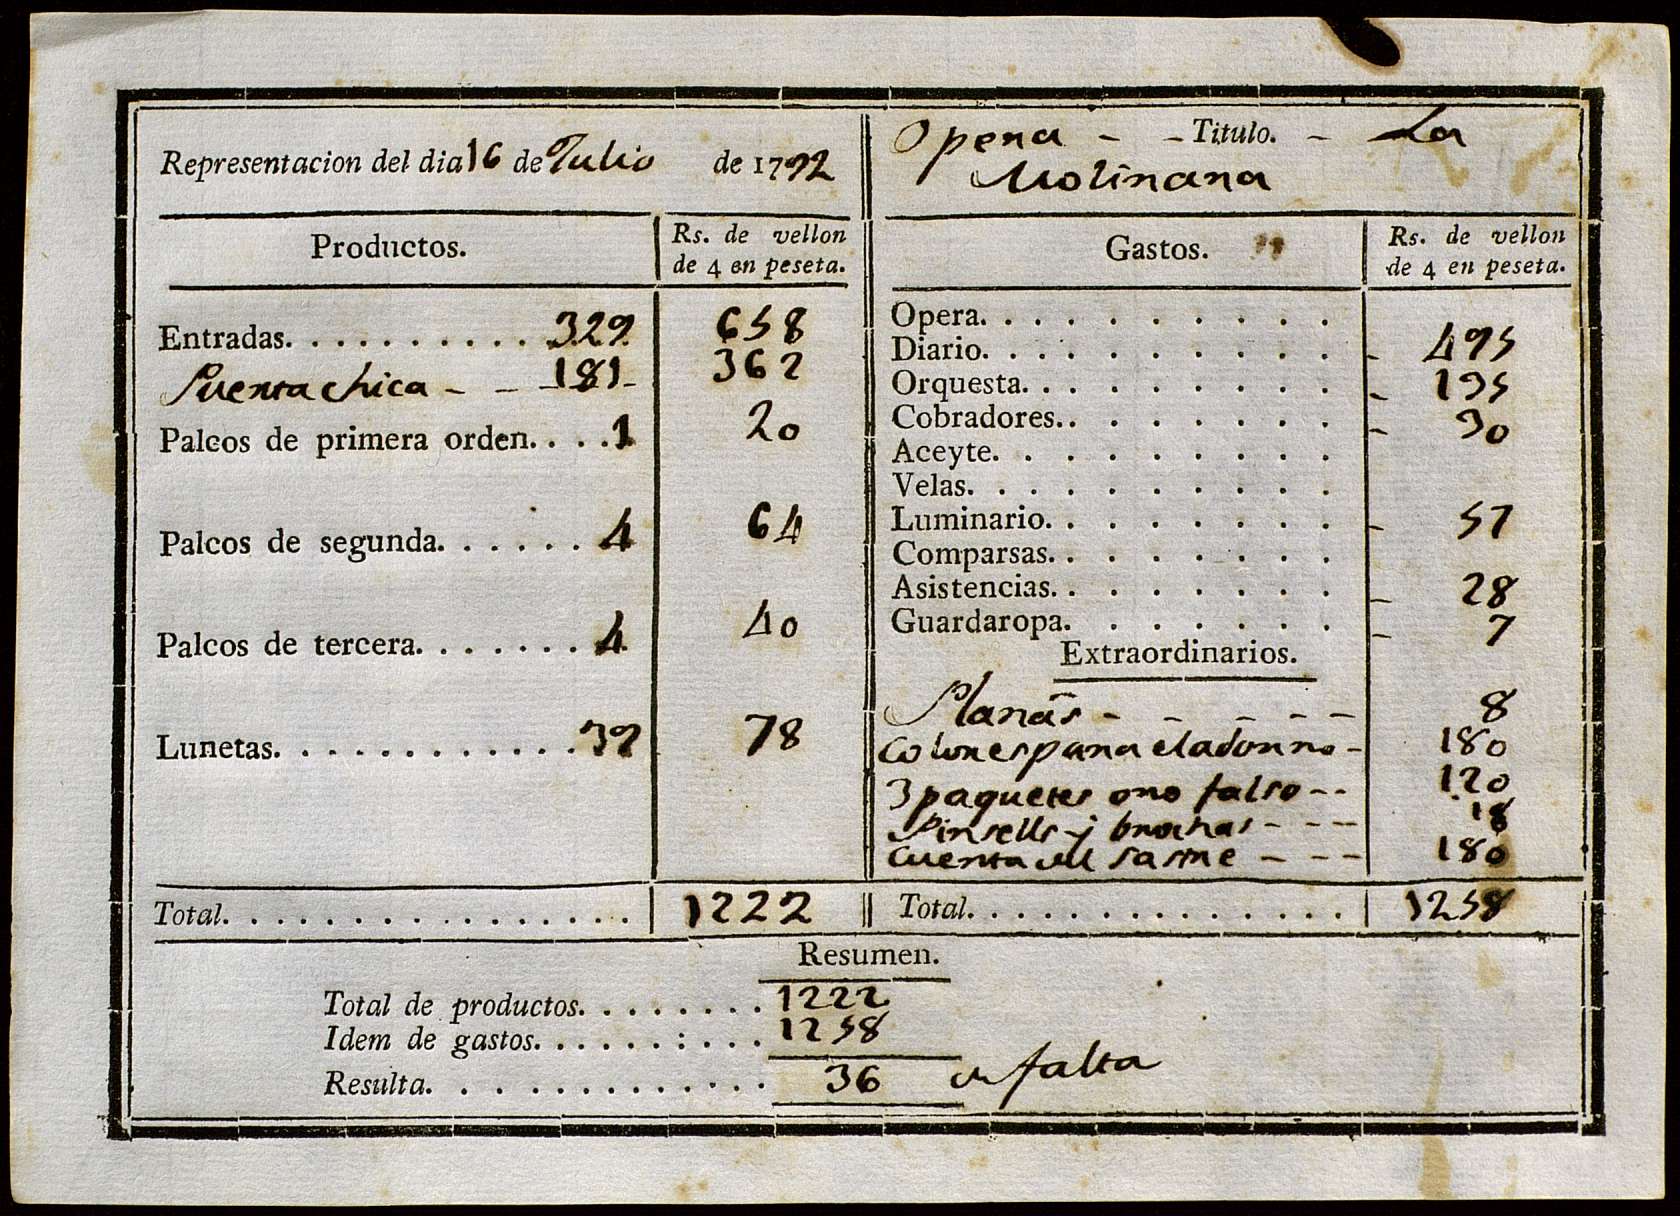 Representacion del dia 16 de Julio de 1792
Opera - - Titulo. - La
Molinara
Productos. Rs. de vellon
de 4 en peseta.
Gastos. Rs. de vellon
de 4 en peseta.
Entradas. . . . . . . . . . 329 658
Puerta chica - - - 181 - 362
Palcos de primera orden. . . . 1 20
Palcos de segunda. . . . . . 4 64
Palcos de tercera. . . . . . . 4 40
Lunetas. . . . . . . . . . . . . 39 78
Total. . . . . . . . . . . . . . . . . 1222
Opera. . . . . . . . . .
Diario. . . . . . . . . . - 495
Orquesta. . . . . . . . . - 135
Cobradores. . . . . . . . - 30
Aceyte. . . . . . . . .
Velas. . . . . . . . . .
Luminario. . . . . . . . - 57
Comparsas. . . . . . . .
Asistencias. . . . . . . . - 28
Guardaropa. . . . . . . - 7
Extraordinarios.
Planás - - - - - 8
colores para el adorno - 180
3 paquetes oro falso - - 120
Pinsells y brochas - - - 18
Cuenta del sastre - - - 180
Total. . . . . . . . . . . . . . 1258
Resumen.
Total de productos. . . . . . . . 1222
Idem de gastos. . . . . . : . . . 1258
Resulta. . . . . . . . . . . . . 36 de falta